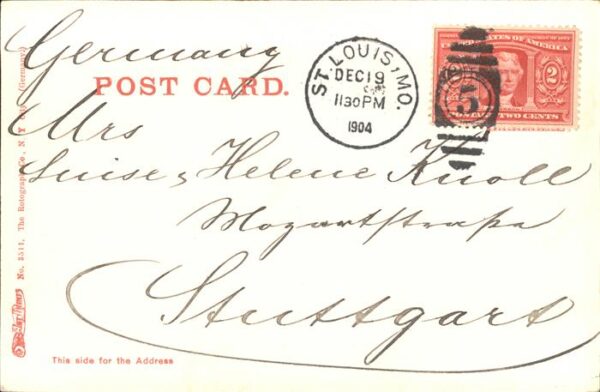 Germany
POST CARD.
ST. LOUIS, MO.
DEC 19
11:30 PM
1904
UNITED STATES OF AMERICA
2
2
5
POSTAGE TWO CENTS
Mrs
Luise, Helene Knoll
Mozartstraße
Stuttgart
No. 3511, The Rotograph Co., N. Y. (Germany.)
This side for the Address